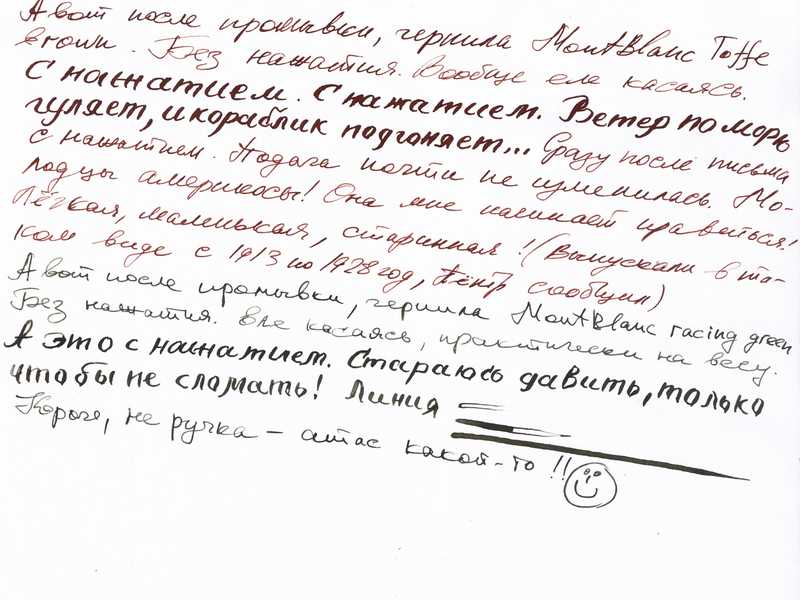 А вот после промывки, чернила MontBlanc Toffe
brown. Без нажатия. Вообще еле касаясь.
С нажатием. С нажатием. Ветер по морю
гуляет, и кораблик подгоняет... Сразу после письма
с нажатием. Подача почти не изменилась. Мо-
лодцы америкосы! Она мне начинает нравиться!
Лёгкая, маленькая, старинная! (Выпускали в та-
ком виде с 1913 по 1928 год, Пётр сообщил)
А вот после промывки, чернила MontBlanc racing green
Без нажатия. Еле касаясь, практически на весу.
А это с нажатием. Стараюсь давить, только
чтобы не сломать! Линия
Короче, не ручка – атас какой-то!!